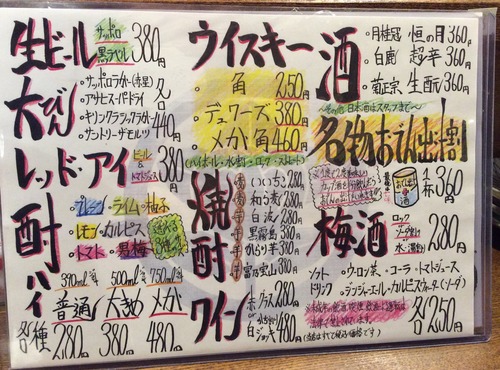 生ビール サッポロ黒ラベル 380円
大びん
・サッポロラガー(赤星)
・アサヒスーパードライ
・キリンクラシックラガー
・サントリーザモルツ
各440円
レッド・アイ ビール&トマトジュース 380円
酎ハイ
・プレーン・ライム・柚子
・レモン・カルピス
・トマト・黒梅
390ml 500ml 750ml
普通 大きめ メガ
各種 280円 380円 480円
ウイスキー
・角 250円
・デュワーズ 380円
・メガ角 460円
(ハイボール・水割・ロック・ストレート)
焼酎
いいちこ 280円
和ら麦 280円
白波 280円
黒霧島 330円
からり芋 380円
富乃宝山 380円
ワイン
・赤グラス 280円
・白ジョッキ 480円
酒
・月桂冠 恒の月 360円
・白鹿 超辛 360円
・菊正宗 生酛 360円
〜その他日本酒はスタッフまで〜
名物おでん出汁割
1杯 360円
梅酒
ロック
ソーダ割り
水・湯割り
280円
ソフトドリンク
・ウーロン茶・コーラ・トマトジュース
・ジンジャーエール・カルピスウォーター(ソーダ)
各250円